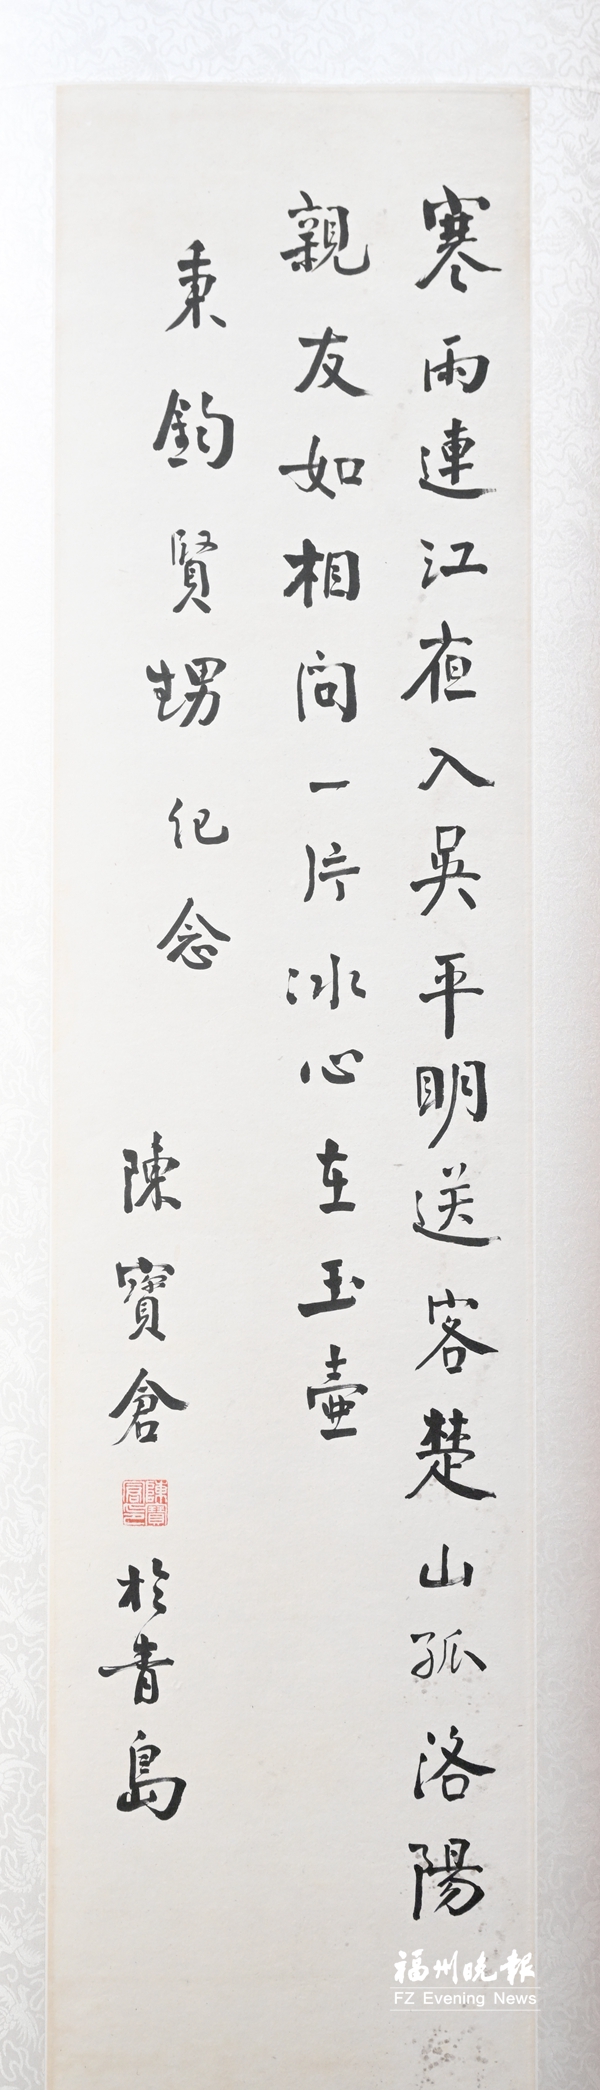 寒雨連江夜入吳平明送客楚山孤洛陽
親友如相問一片冰心在玉壺
秉鈞賢甥紀念
陳寶倉
於青島
福州晚報
FZ Evening News